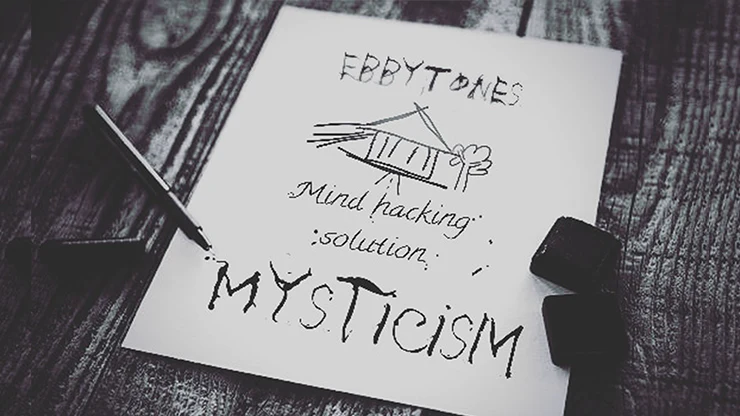 EBBYTONES
Mind hacking
solution
MYSTICISM